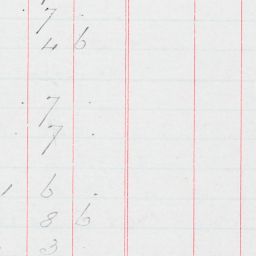 7 .
4 6
. 7 .
. 7 .
1 6 .
8 6
3 .